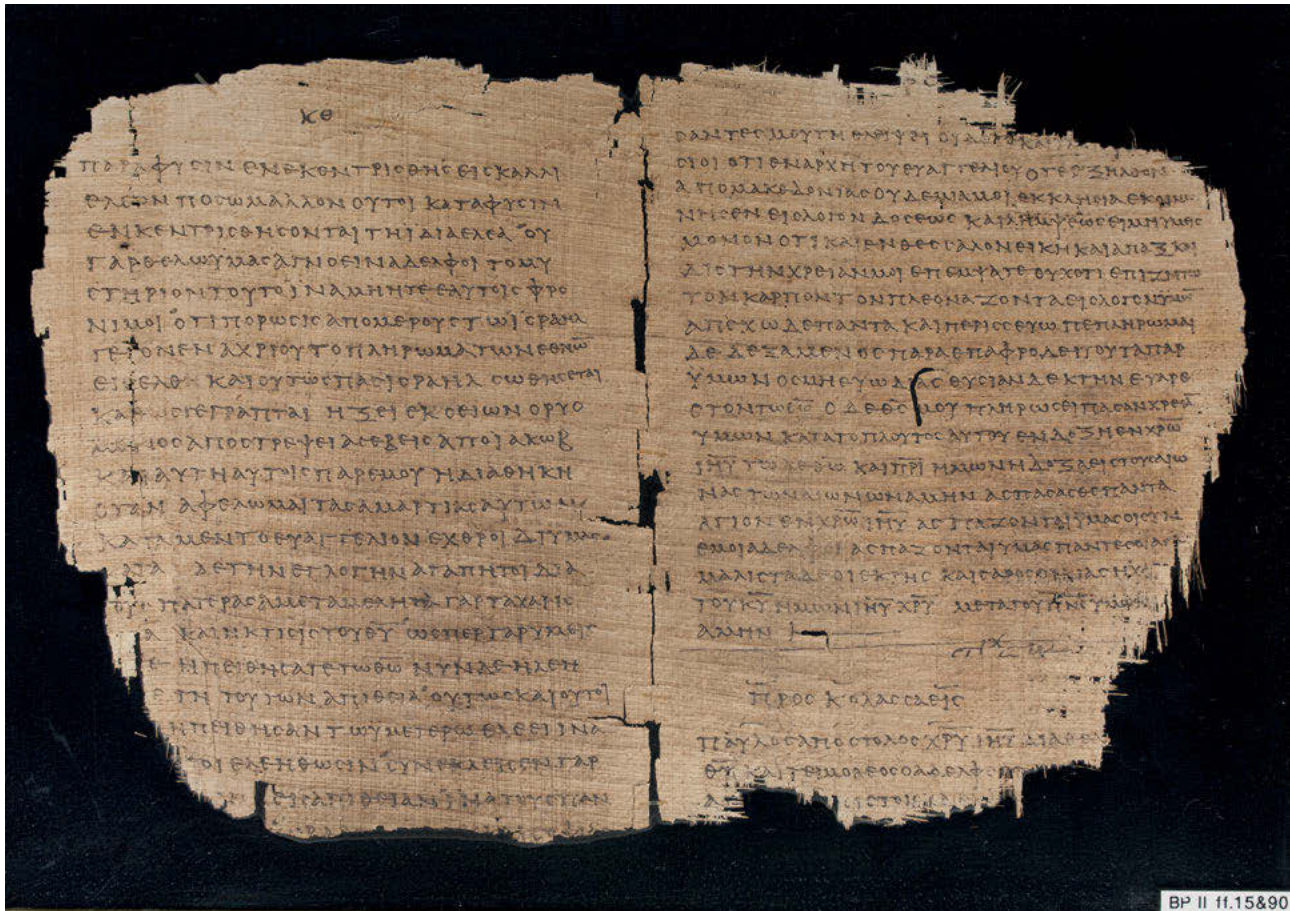 ΚΘ
ΠΑΡΑΦΥϹΙΝΕΝΕΚΕΝΤΡΙϹΘΗϹΕΙϹΚΑΛΛΙ
ΕΛΕΟΝ ΠΟϹΩΜΑΛΛΟΝ ΟΥΤΟΙ ΚΑΤΑΦΥϹΙΝ
ΕΝΚΕΝΤΡΙϹΘΗϹΟΝΤΑΙΤΗΙΔΙΑΕΛΕΑ ΟΥ
ΓΑΡΘΕΛΩΥΜΑϹΑΓΝΟΕΙΝΑΔΕΛΦΟΙ ΤΟΜΥ
ϹΤΗΡΙΟΝΤΟΥΤΟΪΝΑΜΗΗΤΕΕΑΥΤΟΙϹΦΡΟ
ΝΙΜΟΙ ΟΤΙΠΟΡΩϹΙϹΑΠΟΜΕΡΟΥϹΤΩΙϹΡΑΗΛ
ΓΕΓΟΝΕΝΑΧΡΙΟΥΤΟΠΛΗΡΩΜΑΤΩΝΕΘΝΩ̅
ΕΙϹΕΛΘΗ ΚΑΙΟΥΤΩϹΠΑϹΙϹΡΑΗΛ ϹΩΘΗϹΕΤΑΙ
ΚΑΘΩϹΓΕΓΡΑΠΤΑΙ ΗΞΕΙΕΚϹΕΙΩΝΟΡΥΟ
ΜΕΝΟϹΑΠΟϹΤΡΕΨΕΙΑϹΕΒΕΙϹΑΠΟΪΑΚΩΒ
ΚΑΙΑΥΤΗΑΥΤΟΙϹΠΑΡΕΜΟΥΗΔΙΑΘΗΚΗ
ΟΤΑΝ ΑΦΕΛΩΜΑΙΤΑϹΑΜΑΡΤΙΑϹΑΥΤΩΝ
ΚΑΤΑΜΕΝΤΟΕΥΑΓΓΕΛΙΟΝΕΧΘΡΟΙΔΙΥΜΑϹ
ΚΑΤΑ ΔΕΤΗΝΕΓΛΟΓΗΝΑΓΑΠΗΤΟΙΔΙΑ
ΤΟΥϹΠΑΤΕΡΑϹΑΜΕΤΑΜΕΛΗΤΑΓΑΡΤΑΧΑΡΙϹ
ΚΑΙΗΚΤΙϹΙϹΤΟΥΘ̅Υ̅ ΩϹΠΕΡΓΑΡΥΜΕΙϹ
ΗΠΕΙΘΗϹΑΤΕΤΩΘ̅Ω̅ ΝΥΝΔΕΗΛΕΗ
ΤΗ ΤΟΥΤΩΝ ΑΠΙΘΕΙΑ ΟΥΤΩϹΚΑΙΟΥΤΟΙ
ΗΠΕΙΘΗϹΑΝΤΩΥΜΕΤΕΡΩΕΛΕΕΙΙΝΑ
ΤΟΙΕΛΕΗΘΩϹΙΝϹΥΝΕΚΛΕΙϹΕΝΓΑΡ
ΕΙϹΑΠΙΘΕΙΑΝΪΝΑΤΟΥϹΠΑΝ
ϹΑΝΤΕϹΜΟΥΤΗΘΛΕΙΨΕΙ ΟΙΔΑΤΕΚΑΙ
ϹΙΟΙΟΤΙΕΝΑΡΧΗΤΟΥΕΥΑΓΓΕΛΙΟΥΟΤΕΕΞΗΛΘΟΝ
ΑΠΟΜΑΚΕΔΟΝΙΑϹΟΥΔΕΜΙΑΜΟΙΕΚΚΛΗϹΙΑΕΚΟΙΝΩ
ΝΗϹΕΝΕΙϹΛΟΓΟΝΔΟϹΕΩϹ ΚΑΙΛΗΜΨΕΩϹΕΙΜΗΥΜΕΙϹ
ΜΟΝΟΝΟΤΙΚΑΙΕΝΘΕϹϹΑΛΟΝΕΙΚΗΚΑΙΑΠΑΞΚΑΙ
ΔΙϹΤΗΝΧΡΕΙΑΝΜΟΙΕΠΕΜΨΑΤΕΟΥΧΟΤΙΕΠΙΖΗΤΩ
ΤΟΝΚΑΡΠΟΝΤΟΝΠΛΕΟΝΑΖΟΝΤΑΕΙϹΛΟΓΟΝΥΜΩ̅
ΑΠΕΧΩΔΕΠΑΝΤΑΚΑΙΠΕΡΙϹϹΕΥΩΠΕΠΛΗΡΩΜΑΙ
ΔΕΔΕΞΑΜΕΝΟϹΠΑΡΑΕΠΑΦΡΟΔΕΙΤΟΥΤΑΠΑΡ
ΥΜΩΝΟϹΜΗΕΥΩΔΙΑϹΘΥϹΙΑΝΔΕΚΤΗΝΕΥΑΡΕ
ϹΤΟΝΤΩΘ̅Ω̅ ΟΔΕΘ̅Ϲ̅ ΜΟΥΠΛΗΡΩϹΕΙΠΑϹΑΝΧΡΕΙΑ̅
ΥΜΩΝΚΑΤΑΤΟΠΛΟΥΤΟϹΑΥΤΟΥΕΝΔΟΞΗΕΝΧ̅Ρ̅Ω̅
Ι̅Η̅Υ̅ ΤΩΔΕΘ̅Ω̅ ΚΑΙΠ̅Ρ̅Ι̅ ΗΜΩΝΗΔΟΞΑΕΙϹΤΟΥϹΑΙΩ
ΝΑϹΤΩΝΑΙΩΝΩΝΑΜΗΝ ΑϹΠΑϹΑϹΘΕΠΑΝΤΑ
ΑΓΙΟΝΕΝΧ̅Ρ̅Ω̅ Ι̅Η̅Υ̅ ΑϹΠΑΖΟΝΤΑΙΥΜΑϹΟΙϹΥΝ
ΕΜΟΙΑΔΕΛΦΟΙ ΑϹΠΑΖΟΝΤΑΙΥΜΑϹΠΑΝΤΕϹΟΙΑΓΙ
ΜΑΛΙϹΤΑΔΕΟΙΕΚΤΗϹ ΚΑΙϹΑΡΟϹΟΙΚΙΑϹΗΧΑ
ΤΟΥΚ̅Υ̅ ΗΜΩΝΙ̅Η̅Υ̅ Χ̅Ρ̅Υ̅ ΜΕΤΑΤΟΥΠ̅Ν̅Ϲ̅ΥΜΩΝ
ΑΜΗΝ
ΠΡΟϹ ΚΟΛΑϹϹΑΕΙϹ
ΠΑΥΛΟϹΑΠΟϹΤΟΛΟϹΧ̅Ρ̅Υ̅ Ι̅Η̅Υ̅ ΔΙΑΘΕ
Θ̅Υ̅ ΚΑΙΤΕΙΜΟΘΕΟϹΟΑΔΕΛΦΟ
BP II ff.15&90